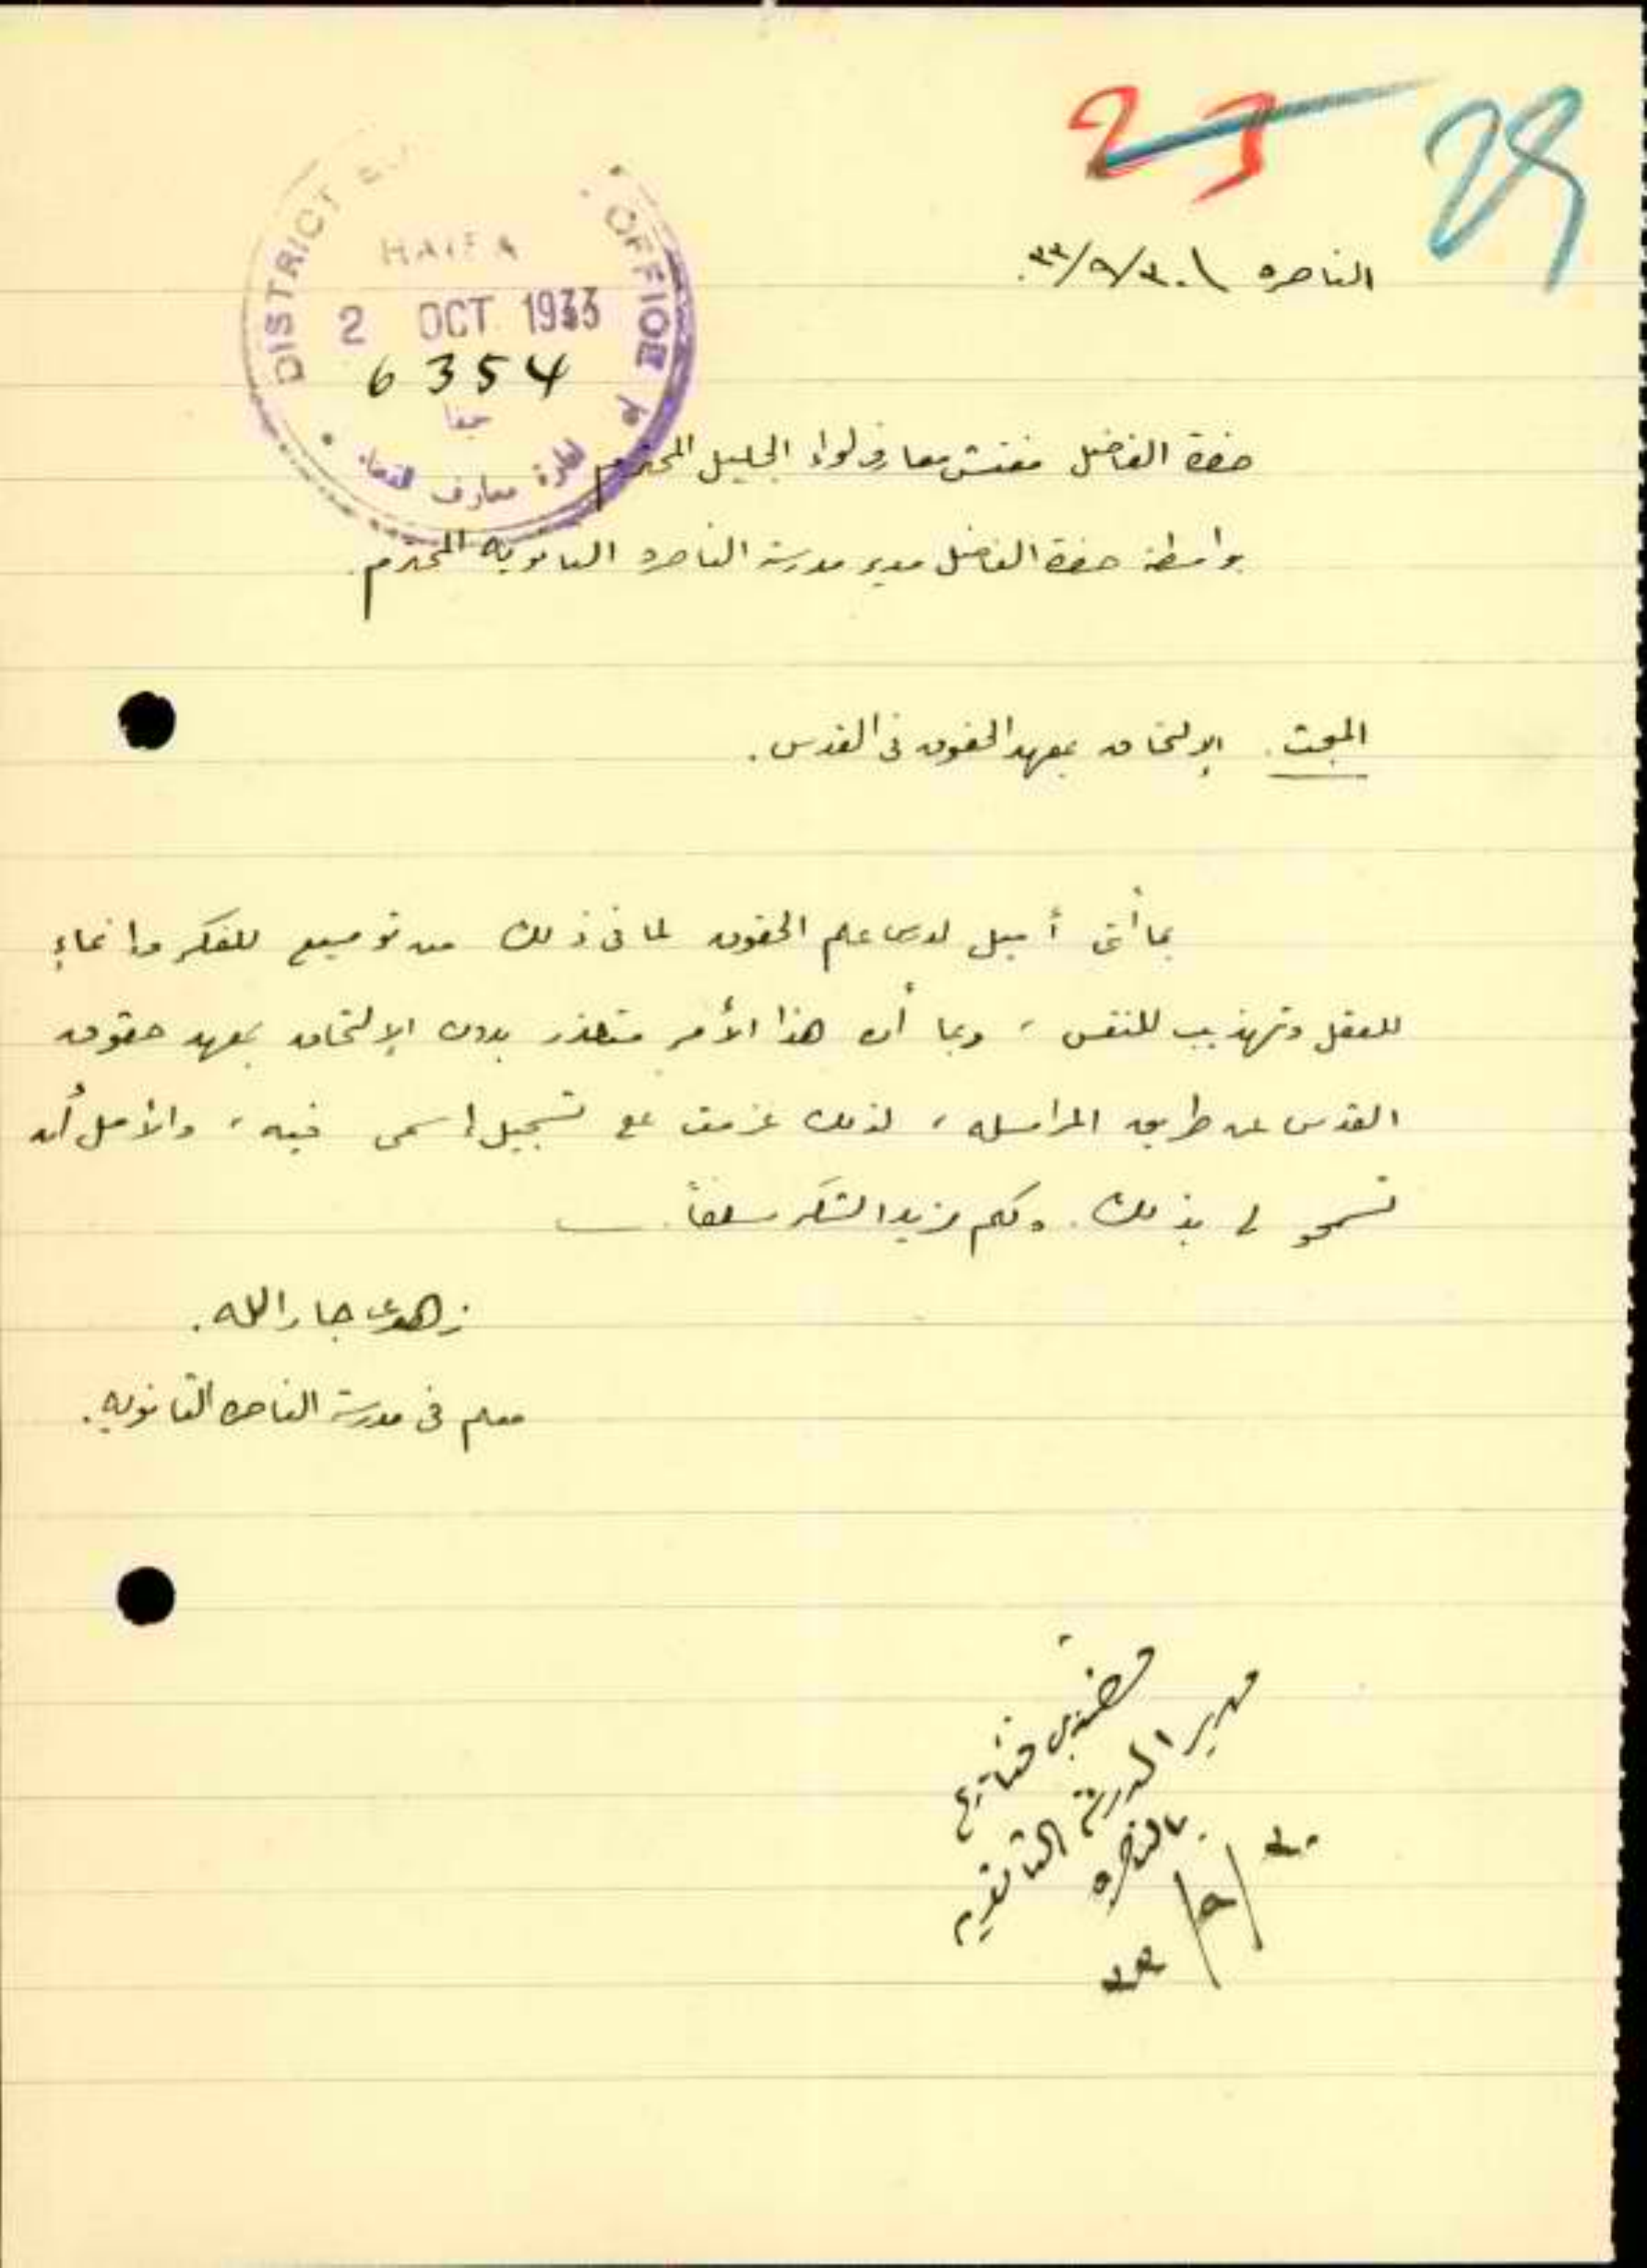 23 29
الناصره ٣٠/٩/٣٣.
DISTRICT OFFICE
HAIFA
2 OCT 1933
6354
حيفا
ادارة معارف
حضرة الفاضل مفتش معارف لواء الجليل المحترم
بواسطة حضرة الفاضل مدير مدرسة الناصره الثانويه المحترم.
المبحث. الإلتحاق بمعهد الحقوق في القدس.
بما أني أميل لدرس علم الحقوق لما في ذلك من توسيع للفكر وإنماءٍ
للعقل وتهذيب للنفس، وبما أن هذا الأمر متعذر بدون الإلتحاق بمعهد حقوق
القدس عن طريق المراسله، لذلك عزمت على تسجيل إسمي فيه، والأمل أن
تسمحو لي بذلك. ولكم مزيد الشكر سلفاً.
زهدي جار الله.
معلم في مدرسة الناصره الثانويه.
مدير المدرسة الثانويه
بالناصره
٣٠/٩/٣٣